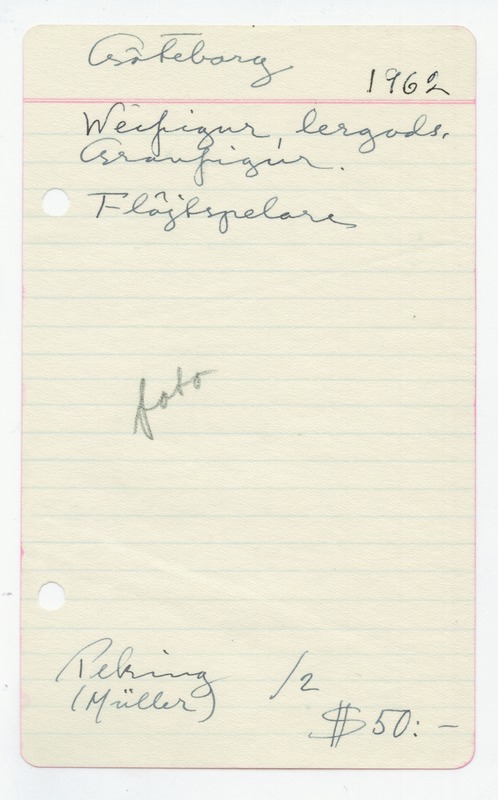 Göteborg
1962
Weifigur, lergods.
Gravfigur.
Flöjtspelare
foto
Peking /2
(Müller)
$50:-